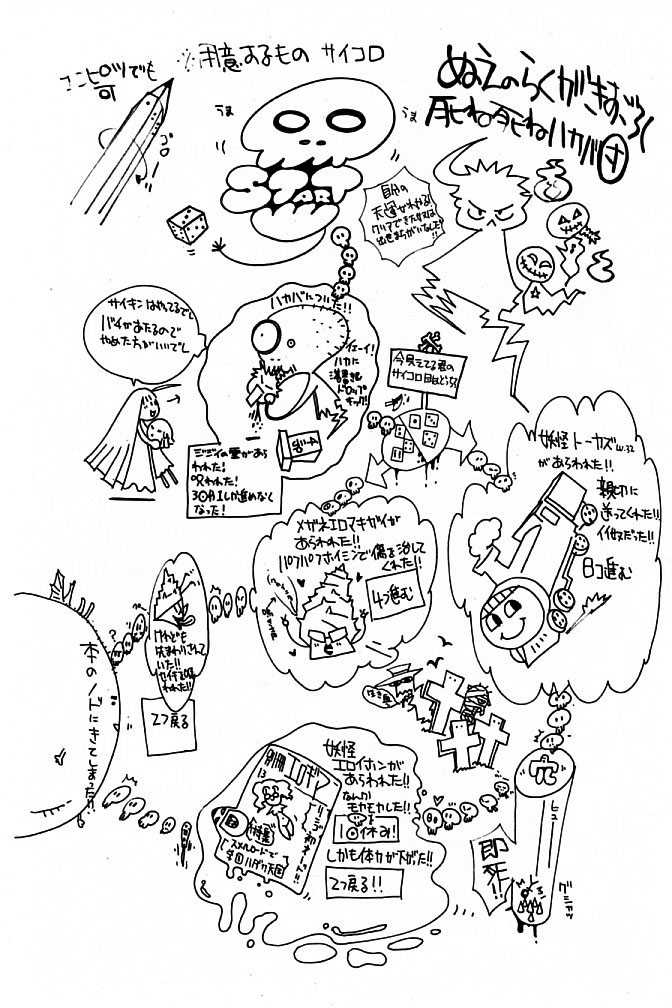 ぬえのらくがきすごろく
死ね死ねハカバ村
※用意するもの サイコロ
エンピツでも
可
コロ
うま
うま
START
自分の
天運がわかる!!
クリアできた方は
出世まちがいなし!!
サイキンはやってるでし
バチがあたるので
やめた方がいいでし
ハカバについた!!
イェーイ!
ハカに
ドロップ
キック!
ジジイの霊があら
われた!
呪われた!
3回1しか進めなく
なった!
今見えてる君の
サイコロ目はどっち?
妖怪トーカズ
があらわれた!!
親切に
送ってくれた!!
イイ奴だった!!
8コ進む
メガネエロマキガイが
あらわれた!!
パフパフホイミンで傷を治して
くれた!!
4つ進む
けれども
先まわりされて
いた!!
2つ戻る
本のノドにきてしまった!!
妖怪
エロイホンが
あらわれた!!
なんか
モヤモヤした!!
1回休み!
しかも体力が下がった!!
2つ戻る!!
別冊エロギン
13
スメルロードで
学園ハダカ天国
穴
ヒュー
即
死!!